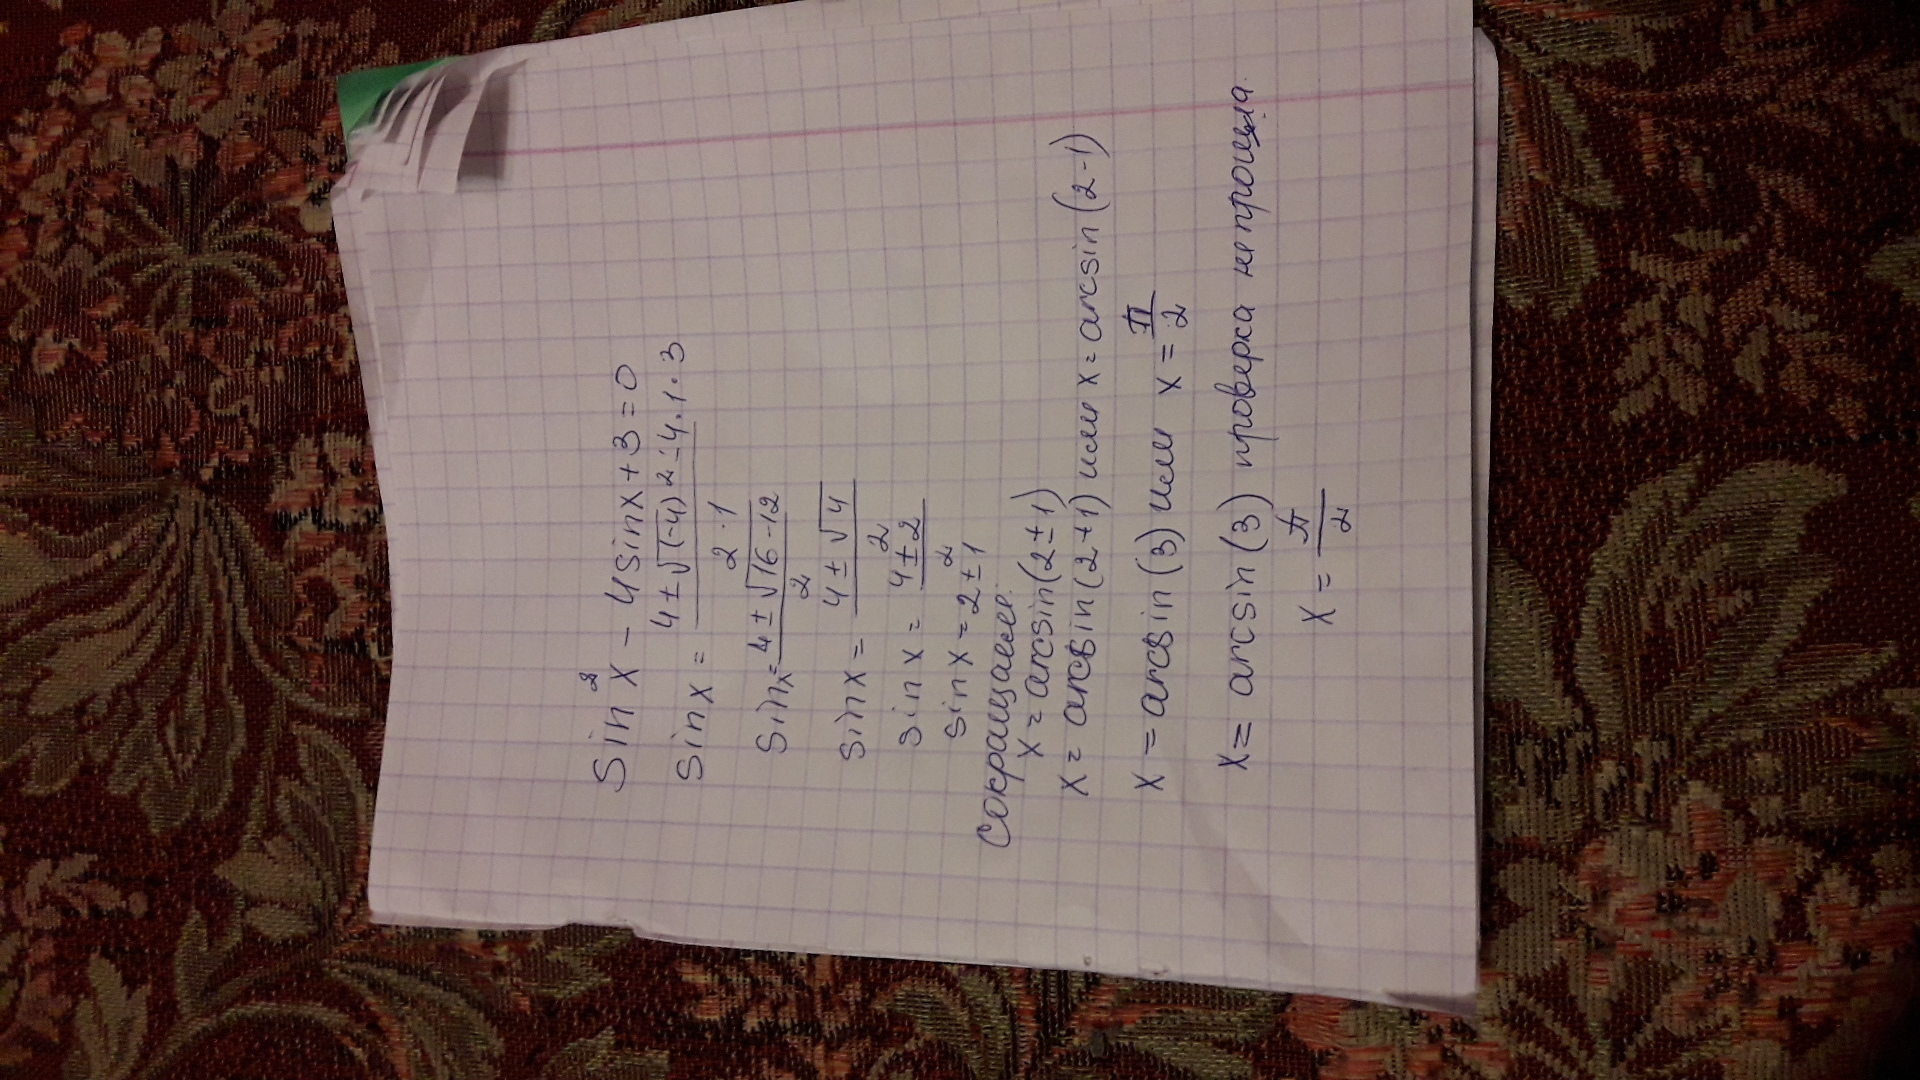 Sin²x - 4sinx+3=0
Sinx = 4±√(-4)2-4·1·3 / 2·1
Sinx = 4±√16-12 / 2
Sinx = 4±√4 / 2
Sin x = 4±2 / 2
Sin x = 2±1
Сокращаем.
x = arcsin(2±1)
x = arcsin(2+1) или x = arcsin(2-1)
x = arcsin(3) или x = π/2
x = arcsin(3) проверка не проща
x = π/2